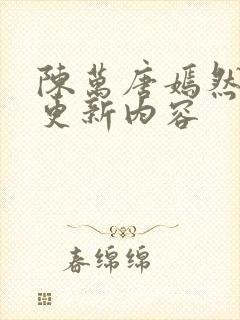 陳萬唐嫣然
更新内容
春绵绵